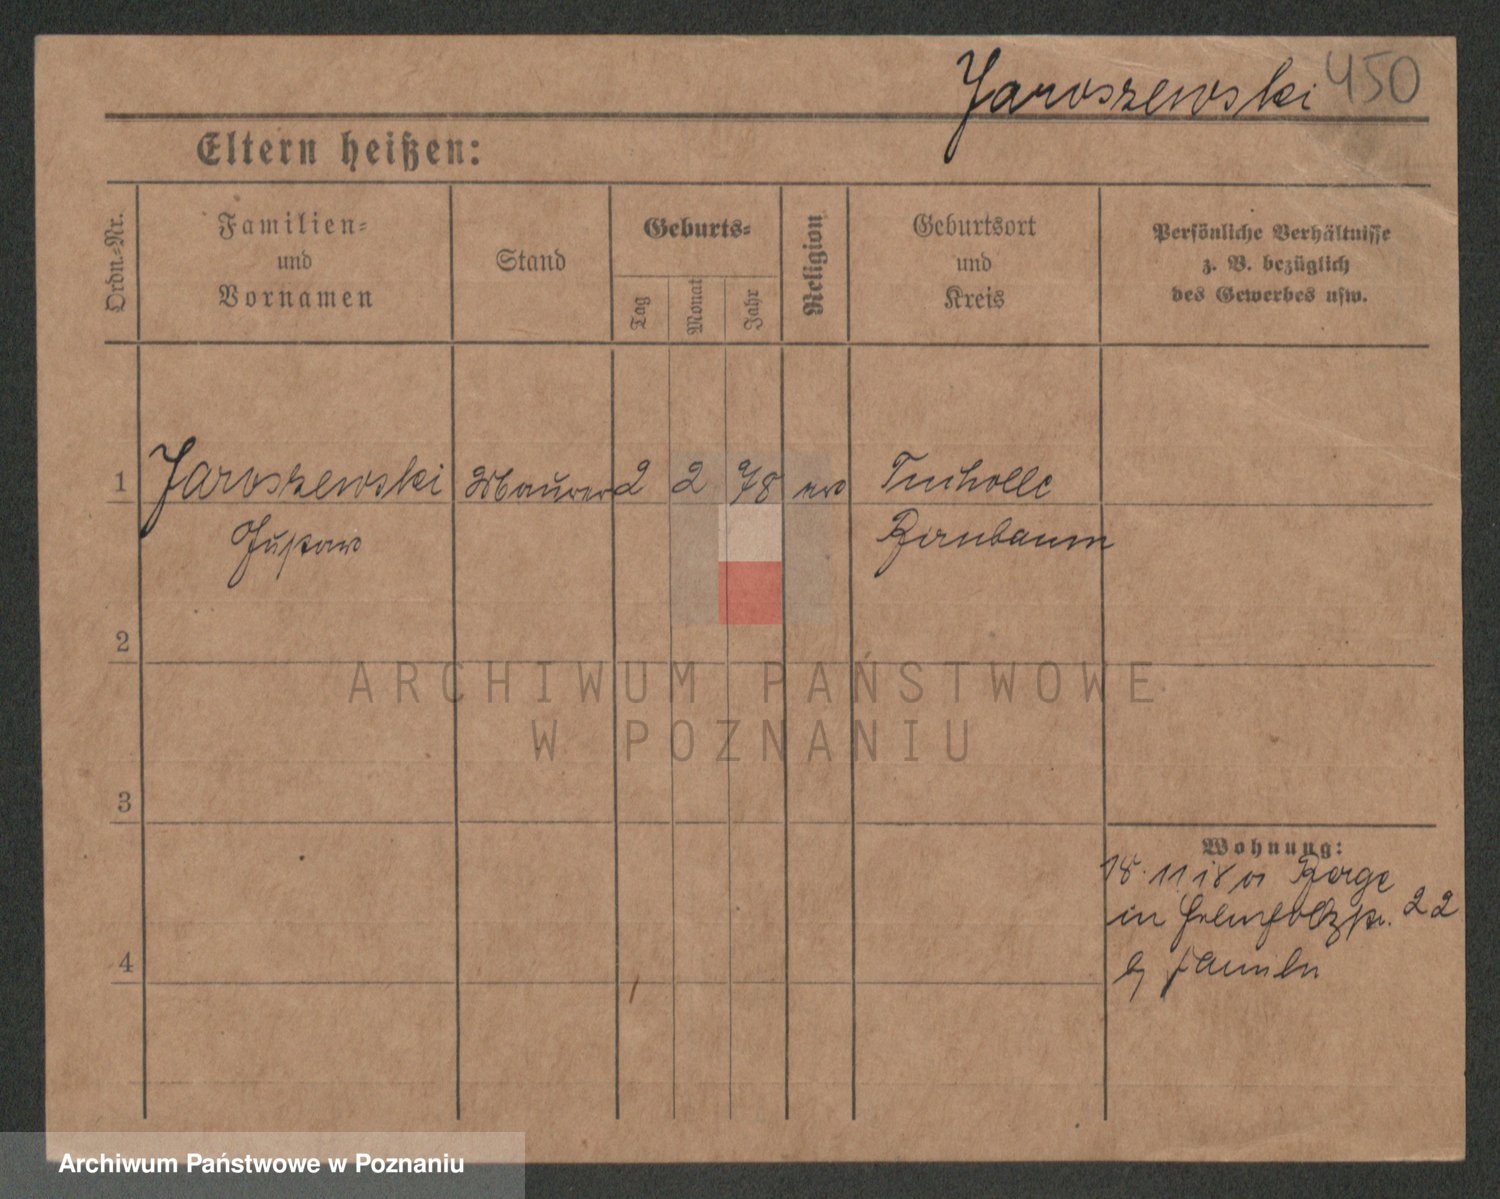 Jaroszewski 450
Eltern heißen:
Ordn.-Nr.
Familien-
und
Vornamen
Stand
Geburts-
Tag
Monat
Jahr
Religion
Geburtsort
und
Kreis
Persönliche Verhältnisse
z. B. bezüglich
des Gewerbes usw.
1 Jaroszewski Maurer 2 2 78 ev Tucholle
Gustav Birnbaum
2
ARCHIWUM PAŃSTWOWE
W POZNANIU
3
Wohnung:
18. 11 18 Berge
in 22
4
Archiwum Państwowe w Poznaniu